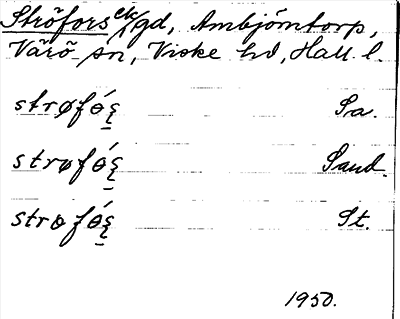 Ströfors elr/gd, Ambjörntorp,
Värö sn, Viske hd, Hall. l.
strøfǿ̞ʂ Sa.
strøfǿ̞ʂ Sand.
strøfǿ̞ʂ St.
1950.